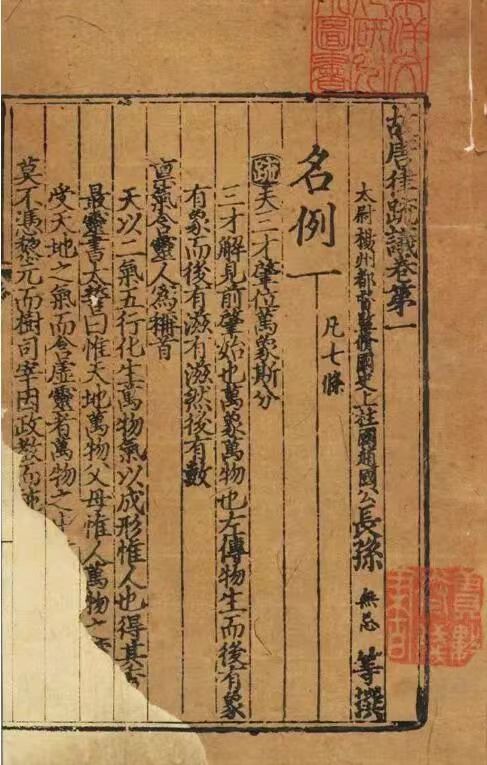 故唐律疏議卷第一
太尉揚州都督監脩國史上柱國趙國公長孫無忌等撰
名例一
凡七條
疏夫三才肇位萬象斯分
三才解見前肇始也萬象萬物也左傳物生而後有象
有象而後有滋有滋然後有數
稟氣含靈人爲稱首
天以二氣五行化生萬物氣以成形惟人也得其
最靈書太誓曰惟天地萬物父母惟人萬物之
受天地之氣而含虛靈者萬物之
莫不憑黎元而樹司宰因政教而